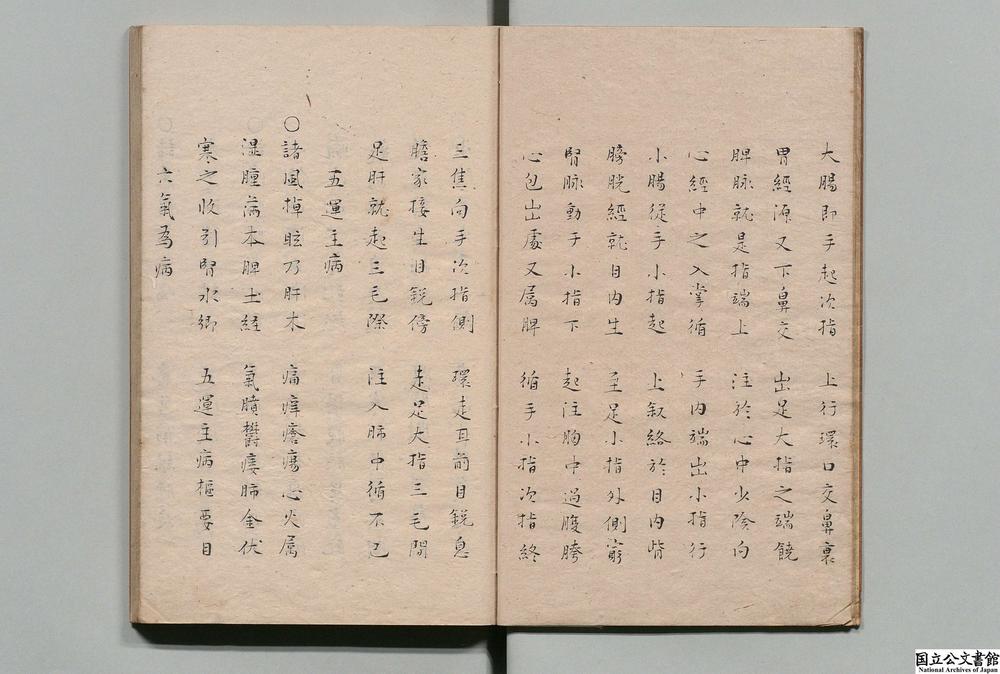 大腸即手起次指　上行環口交鼻裏
胃經源又下鼻交　出足大指之端饒
脾脉就是指端上　注於心中少陰向
心經中之入掌循　手内端出小指行
小腸從手小指起　上釵絡於目内眥
膀胱經就目内生　至足小指外側窮
腎脉動于小指下　起注胸中過腹胯
心包出處又属脾　循手小指次指終
三焦向手次指側　環走耳前目銳息
膽家接生目銳傍　走足大指三毛間
足肝就起三毛際　注入肺中循不已
五運主病
○諸風掉眩乃肝木　痛痒瘡瘍心火属
湿腫満本脾土経　氣膹欝痿肺金伏
寒之收引腎水郷　五運主病樞要目
六氣為病
国立公文書館
National Archives of Japan